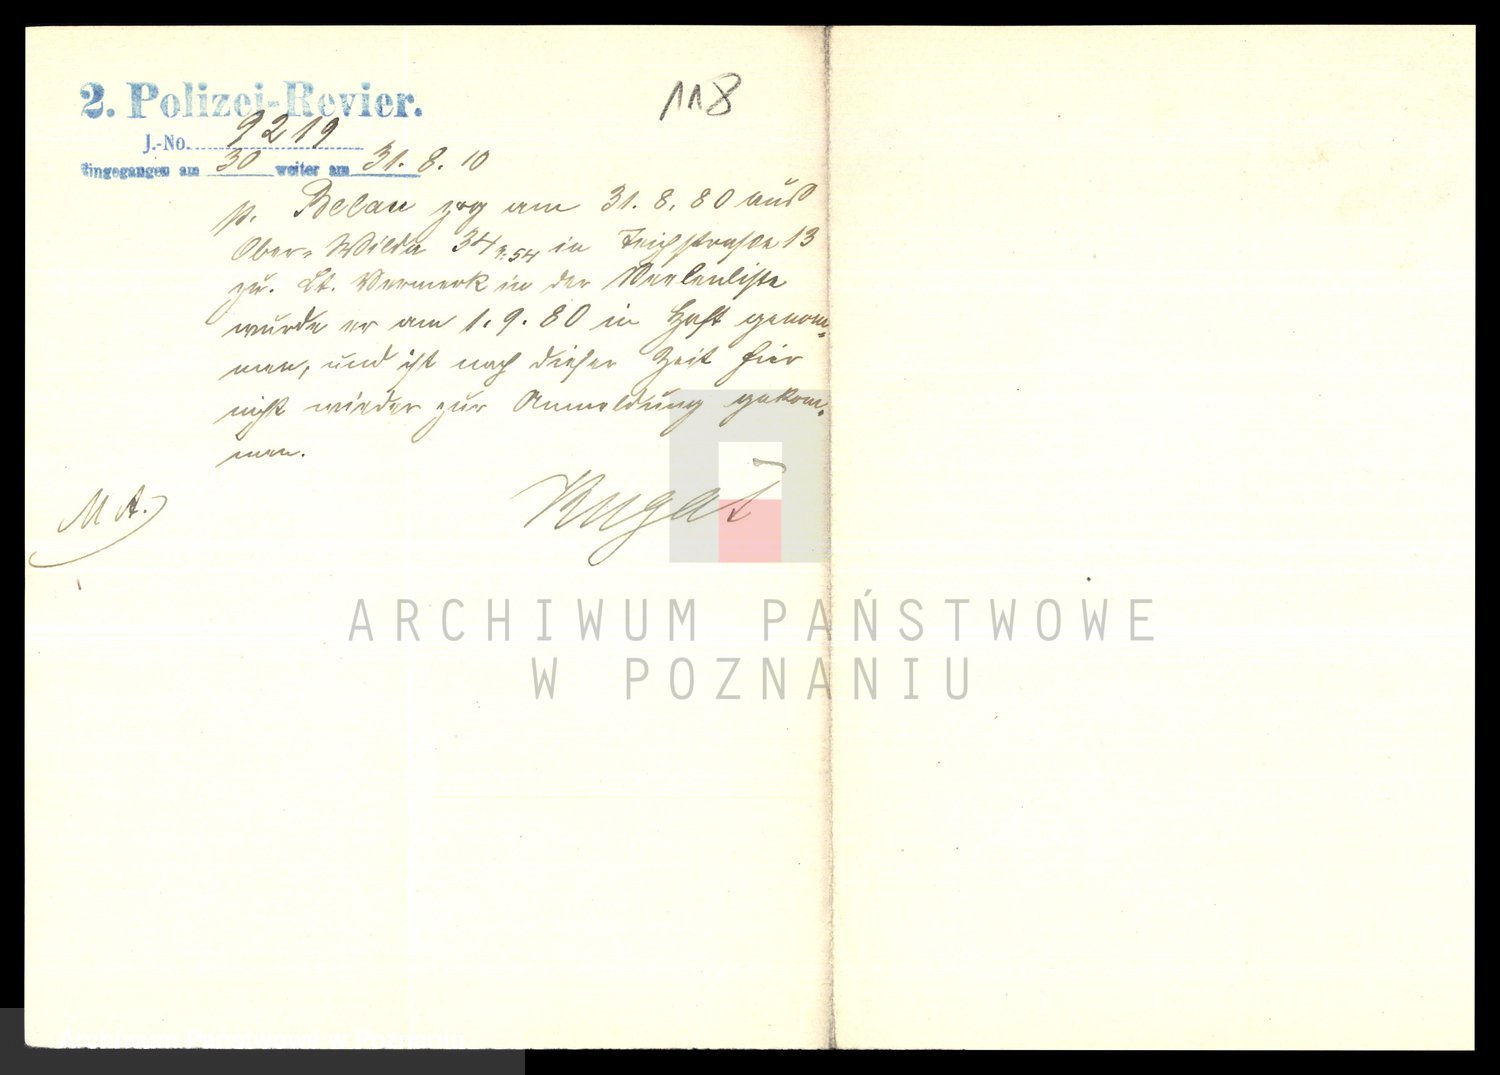 118
2. Polizei-Revier.
J.-No. 9219
Eingegangen am 30 weiter am 31. 8. 10
p. Belau zog am 31. 8. 80 aus
Ober-Wilda 34 in Teichstraße 13
zu. Lt. Vermerk in der Seelenliste
wurde er am 1. 9. 80 in Haft genom-
men, und ist nach dieser Zeit hier
nicht wieder zur Anmeldung gekom-
men.
M A.
ARCHIWUM PAŃSTWOWE
W POZNANIU